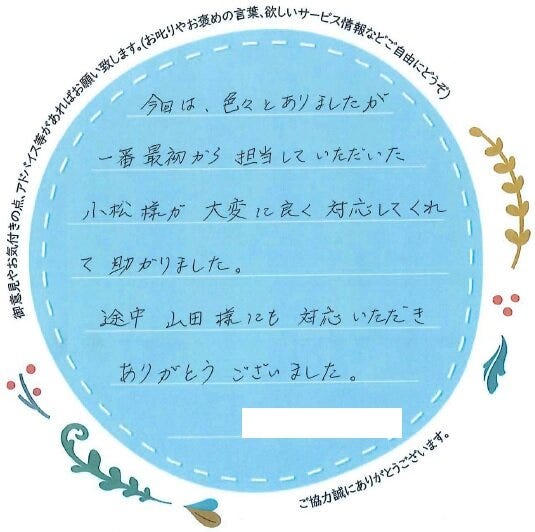 御意見やお気付きの点、アドバイス等があればお願い致します。(お叱りやお褒めの言葉、欲しいサービス情報などご自由にどうぞ)
今回は、色々とありましたが
一番最初から担当していただいた
小松様が大変に良く対応してくれ
て助かりました。
途中山田様にも対応いただき
ありがとうございました。
ご協力誠にありがとうございます。